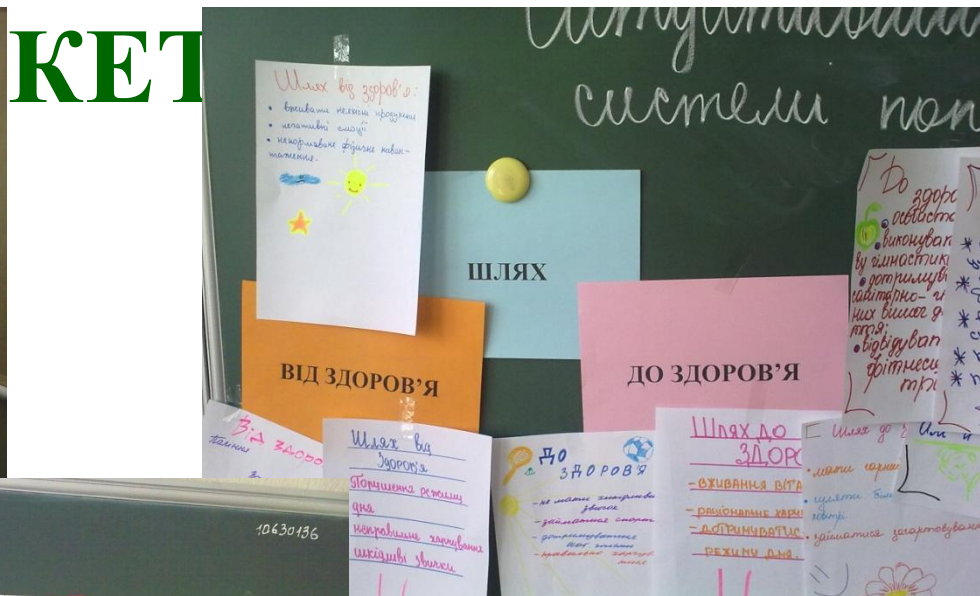 КЕТ
системи поп
Шлях від здоров'я:
• вживати неякісні продукти
• негативні емоції
• ненормоване фізичне наван-
таження.
ШЛЯХ
ВІД ЗДОРОВ'Я
ДО ЗДОРОВ'Я
До
здоро
виконуван
ву гімнастик
• дотримув
санітарно- гі
них вимог
ття;
• відвідуват
фітнес
тр
Від здоро
Шлях від
Здоров'я
Порушення режиму
дня
неправильне харчування
шкідливі звички
ДО
ЗДОРОВ'Я
- не мати шкідливи
звичок
- займатися спорт
- дотримуватися
Шлях до
ЗДОРО
- ВЖИВАННЯ ВІТА
- РАЦІОНАЛЬНЕ ХАРЧ
- ДОТРИМУВАТИС
РЕЖИМУ ДНЯ.
Шлях до
• мати гарни
• гуляти біл
повітрі
• займатися загартовуван
10630136